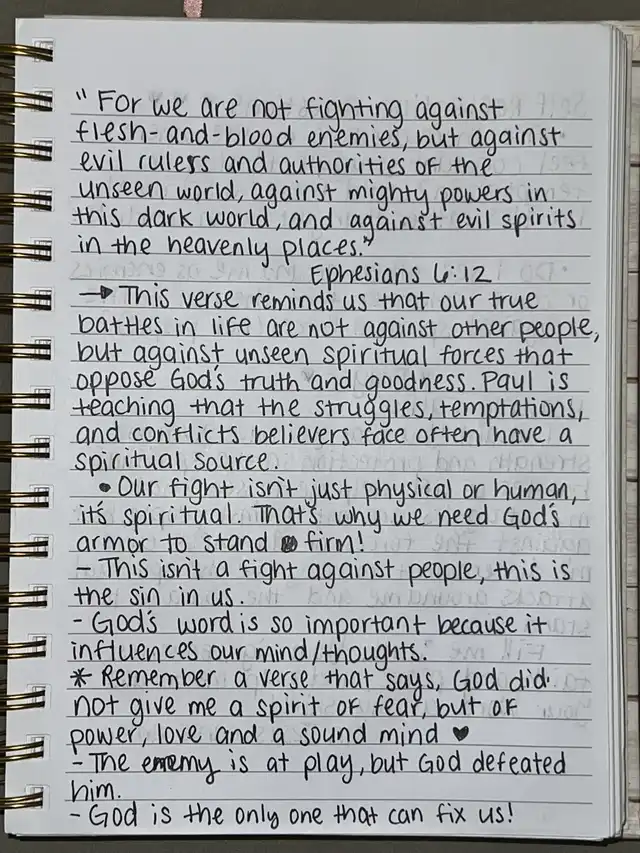 " For we are not fighting against
flesh-and-blood enemies, but against
evil rulers and authorities of the
unseen world, against mighty powers in
this dark world, and against evil spirits
in the heavenly places."
Ephesians 6:12
→ This verse reminds us that our true
battles in life are not against other people,
but against unseen spiritual forces that
oppose God's truth and goodness. Paul is
teaching that the struggles, temptations,
and conflicts believers face often have a
spiritual source.
• Our fight isn't just physical or human,
it's spiritual. That's why we need God's
armor to stand firm!
- This isn't a fight against people, this is
the sin in us.
- God's word is so important because it
influences our mind/thoughts.
* Remember a verse that says, God did
not give me a spirit of fear, but of
power, love and a sound mind ♥
- The enemy is at play, but God defeated
him.
- God is the only one that can fix us!